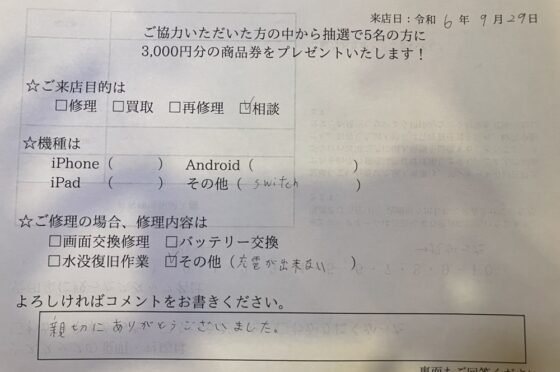 来店日：令和 6 年 9 月 29 日
ご協力いただいた方の中から抽選で5名の方に
3,000円分の商品券をプレゼントいたします！
☆ご来店目的は
□修理 □買取 □再修理 ☑相談
☆機種は
iPhone（ ） Android（ ）
iPad （ ） その他（ switch ）
☆ご修理の場合、修理内容は
□画面交換修理 □バッテリー交換
□水没復旧作業 ☑その他（充電が出来ない）
よろしければコメントをお書きください。
親切にありがとうございました。
裏面もご回答ください